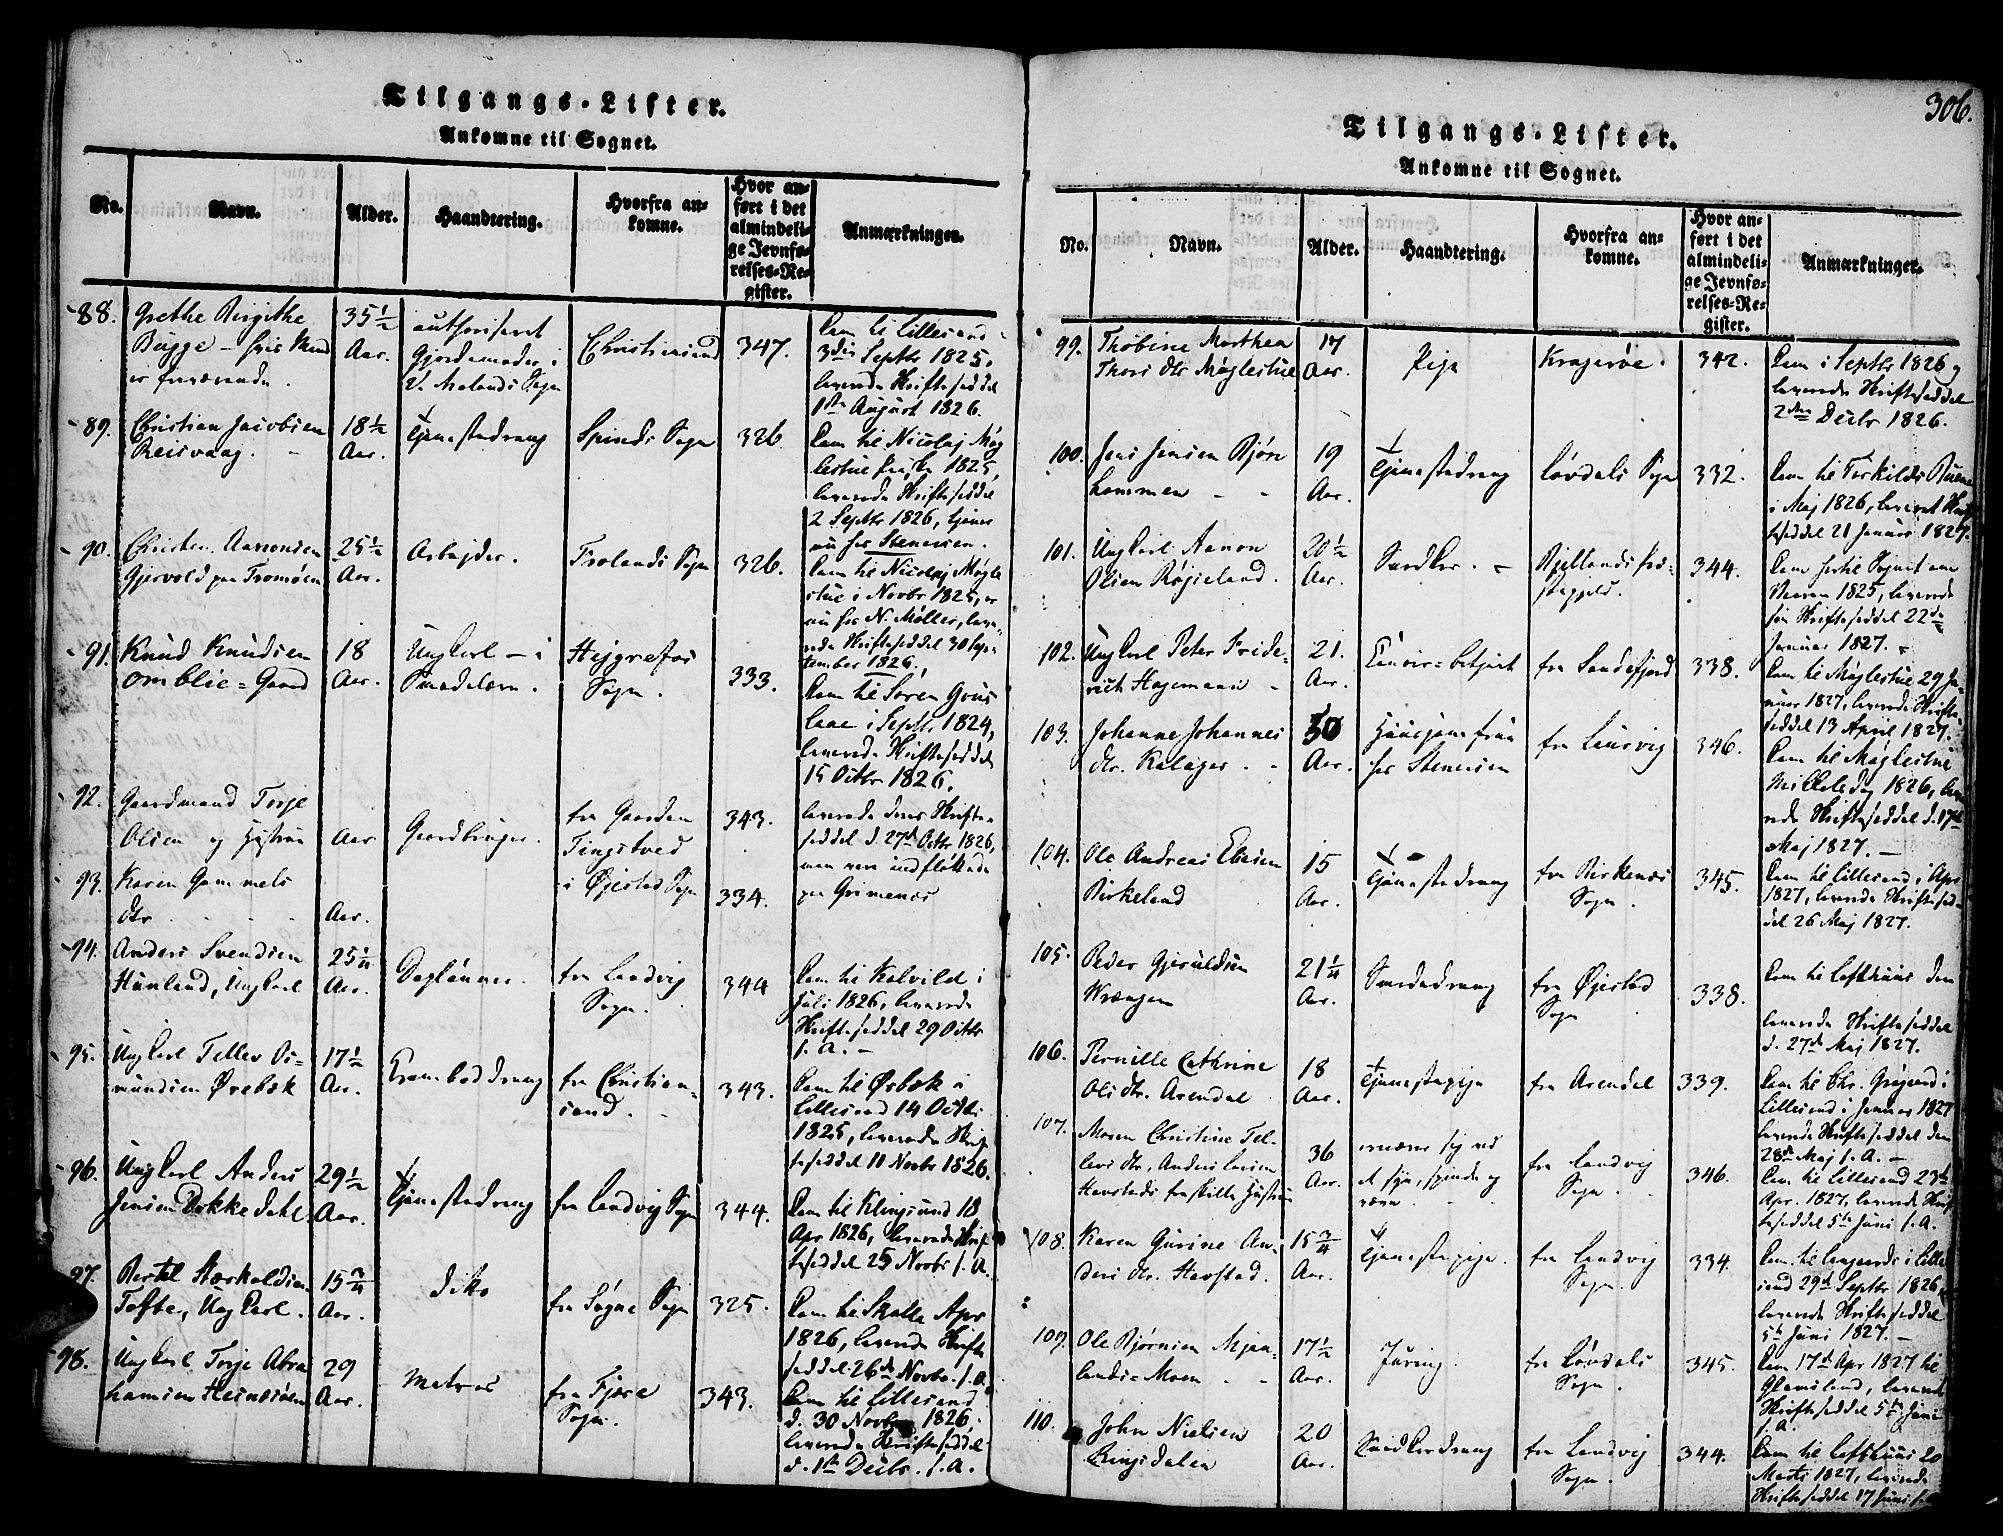 Tilgangs-Lister.
Ankomne til Sognet.
No.
Navn.
Alder.
Haandtering.
Hvorfra an-
komne.
Hvor an-
ført i det
almindeli-
ge Jevnfø-
relses-Re-
gister.
Anmærkninger.
88.
Grethe Birgithe
Bugge - hvis Mand
er fraværende.
35½
Aar.
authoriseret
Gjordemoder i
V. Molands Sogn
Christiansand
347.
kom til Lillesand
3die Septbr 1825,
leverede Skrifteseddel
1ste August 1826.
89.
Christian Jacobsen
Reisvaag.
18½
Aar.
Tjenestedreng
Spinds Sogn
326
kom til Nicolaj Møg
lestue 1825,
leverede Skrifteseddel
2 Septbr 1826, tjener
nu hos Stenersen.
90.
Christen Aanonsen
Gjervold paa Tromøen
25½
Aar.
Arbejder.
Frolands Sogn
326.
kom til Nicolaj Mögle
stue i Novbr 1825, er
nu hos N. Møller, leve-
rede Skrifteseddel 30 Sep-
tember 1826.
91.
Knud Knudsen
Omblie-Gaard
18
Aar.
Ungkarl - i
Smedelære.
Hejgrefos
Sogn.
333.
kom til Søren Grus
i Septbr. 1824,
leverede Skrifteseddel
15 Octbr 1826.
92.
Gaardmand Torje
Olsen og Hustrue
Aar
Gaardbruger.
fra Gaarden
Tingstved
i Øjestad Sogn
343.
leverede deres Skrifte-
seddel d. 27de Octbr 1826,
men vare indflöttede
paa Grimenes
93.
Karen Gammels
dtr
Aar.
334.
94.
Anders Svendsen
Hunland, Ungkarl
25¼
Aar.
Daglönner.
fra Landvig
Sogn.
344
kom til Kalvild i
Juli 1826, leverede
Skrifteseddel 29 Octbr
s. A. -
95.
Ungkarl Tellev Os-
mundsen Ørebæk
17½
Aar.
Kramboddreng
fra Christian-
sand.
343.
kom til Örbæk i
Lillesand 14 Octbr
1825, leverede Skrif-
teseddel 11 Novbr 1826.
96.
Ungkarl Anders
Jensen Dokkedahl
29½
Aar.
Tjenestedreng
fra Landvig Sogn
344.
kom til Klingsund 18
Apr 1826, leverede Skrif-
teseddel 25 Novbr s. A.
97.
Bertel Stærkoldsen
Tofte, Ungkarl.
15¾
Aar.
dito
fra Søgne Sogn
325.
kom til Skalle Apr
1826, leverede Skrifte-
seddel 26de Novbr. s. A.
98.
Ungkarl Torje Abra
hamsen Hesnesöen
29
Aar.
Matros
fra Fjære
Sogn.
343.
kom til Lillesand
d. 30 Novbr 1826,
leverede Skrifteseddel
d. 1ste Decbr. s. A.
306.
Tilgangs-Lister.
Ankomne til Sognet.
No.
Navn.
Alder.
Haandtering.
Hvorfra an-
komne.
Hvor an-
ført i det
almindeli-
ge Jevnfø-
relses-Re-
gister.
Anmærkninger.
99.
Thobine Marthea
Thors dtr Møglestue
17
Aar.
Pige
Kragerøe.
342.
kom i Septbr 1826 og
leverede Skrifteseddel
2den Decbr 1826.
100.
Jens Jensen Bjørn
kommen
19
Aar.
Tjenestedreng
Løvdals Sogn
332.
kom til Torkilds
i Maj 1826, leveret Skrif
teseddel 21 Januar 1827.
101.
Ungkarl Aanon
Olsen Røjseland.
20½
Aar.
Snedker.
Bjellands præ-
stegjeld.
344.
kom hertil Sognet
1825, leverede
sin Skrifteseddel 22de
Januar 1827.
102.
Ungkarl Peter Fride-
rich Hagemann
21.
Aar.
Contoir-betjent
fra Sandefjord
338.
kom til Møglestue 29 Ja-
nuar 1827, leverede Skrifte-
seddel 13 April 1827.
103.
Johanne Johannes
dtr. Kalager.
50
Aar.
Huusjomfrue
hos Stenersen
fra Laurvig
346.
kom til Møglestue
Mikkelsdag 1826, leve
rede Skrifteseddel d. 17de
Maj 1827. -
104.
Ole Andreas Ebesen
Birkeland
15
Aar.
Tjenestedreng
fra Birkenæs
Sogn.
345.
kom til Lillesand i Apr
1827, leverede Skriftesed-
del 26 Maj 1827.
105.
Peder Gjeruldsen
Wrængen
21¼
Aar.
Smededreng
fra Øjestad
Sogn
338.
kom til Lofthuus den
leverede Skrifteseddel
d. 27de Maj 1827.
106.
Pernille Cathrine
Ols dtr. Arendal
18
Aar.
Tjenestepige
fra Arendal
339.
kom til Chr. Grøgaard i
Lillesand i Januar 1827
leverede Skrifteseddel den
28de Maj s. A. -
107.
Maren Christine Tel-
levs dtr, Anders Larsen
Havstads fraskilte Hustrue
36
Aar.
ernærer sig ved
at sye, spinde og
væve
fra Landvig
Sogn.
346.
kom til Lillesand 23de
Apr. 1827, leverede Skrif
teseddel 5te Juni s. A.
108.
Karen Gurine An-
ders dtr. Havstad.
15¾
Aar.
Tjenestepige.
fra Landvig
Sogn.
334.
kom til Langaards i Lille
sand 29de Septbr 1826,
leverede Skrifteseddel
5te Juni 1827. -
109.
Ole Bjørnsen Mjaa-
lands-Moen
17½
Aar.
fra Løvdals
Sogn.
345.
kom 17de Apr 1827 til
Glamsland, leverede
Skrifteseddel 5te Juni
s. A.
110.
John Nielsen
Ringsdalen
20
Aar.
Snedkerdreng
fra Landvig
Sogn.
344.
kom til Lofthuus 20
Marts 1827, leverede
Skrifteseddel 17 Juni s.